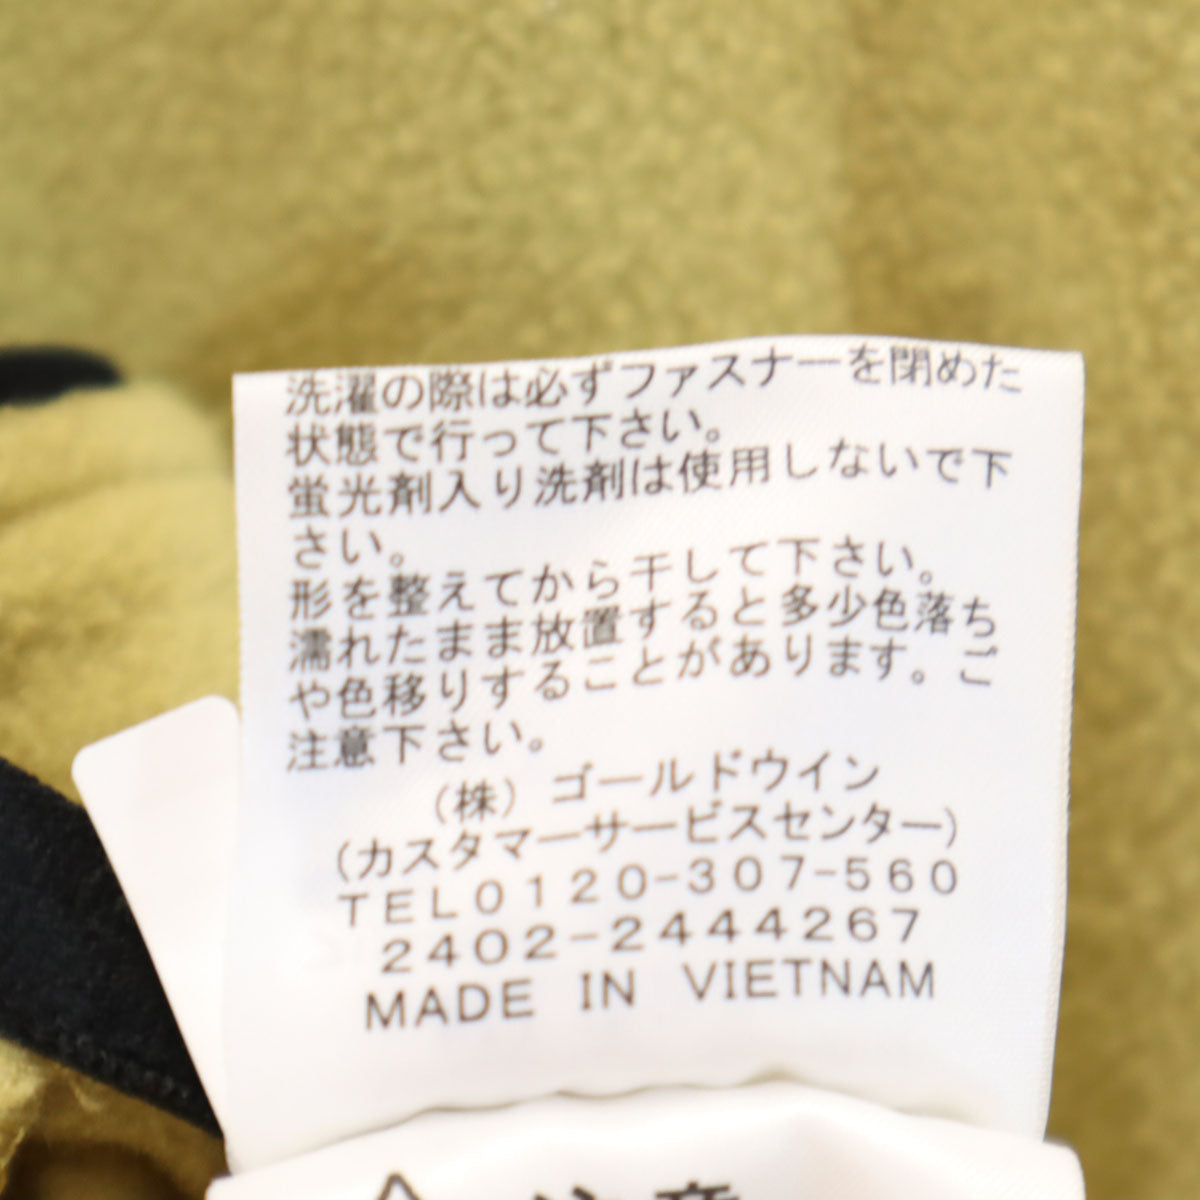 洗濯の際は必ずファスナーを閉めた
状態で行って下さい。
蛍光剤入り洗剤は使用しないで下
さい。
形を整えてから干して下さい。
濡れたまま放置すると多少色落ち
や色移りすることがあります。ご
注意下さい。
(株)ゴールドウイン
(カスタマーサービスセンター)
TEL0120-307-560
2402-2444267
MADE IN VIETNAM
注意